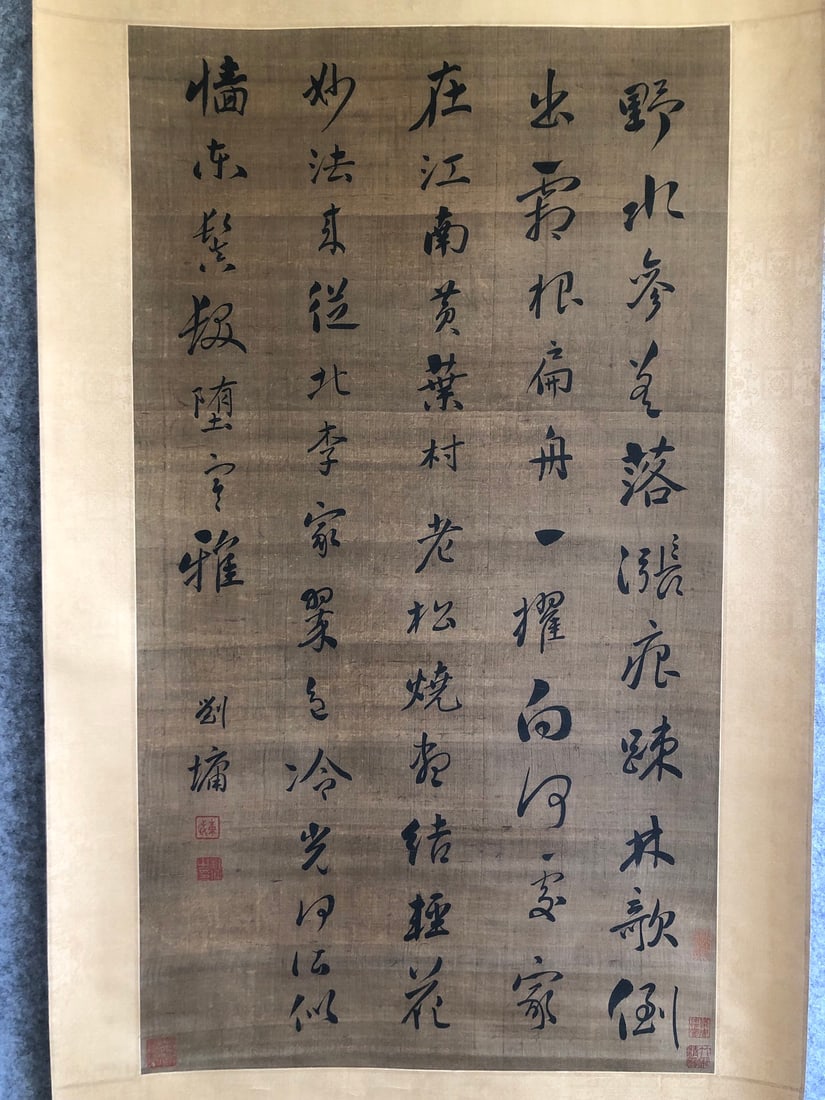 野水參差落漲痕踈林欹倒
出霜根扁舟一擢向何處家
在江南黃葉村老松燒盡結輕花
妙法來從北李家翠色冷光何所似
墻東鬒髮墮寒雅
劉墉